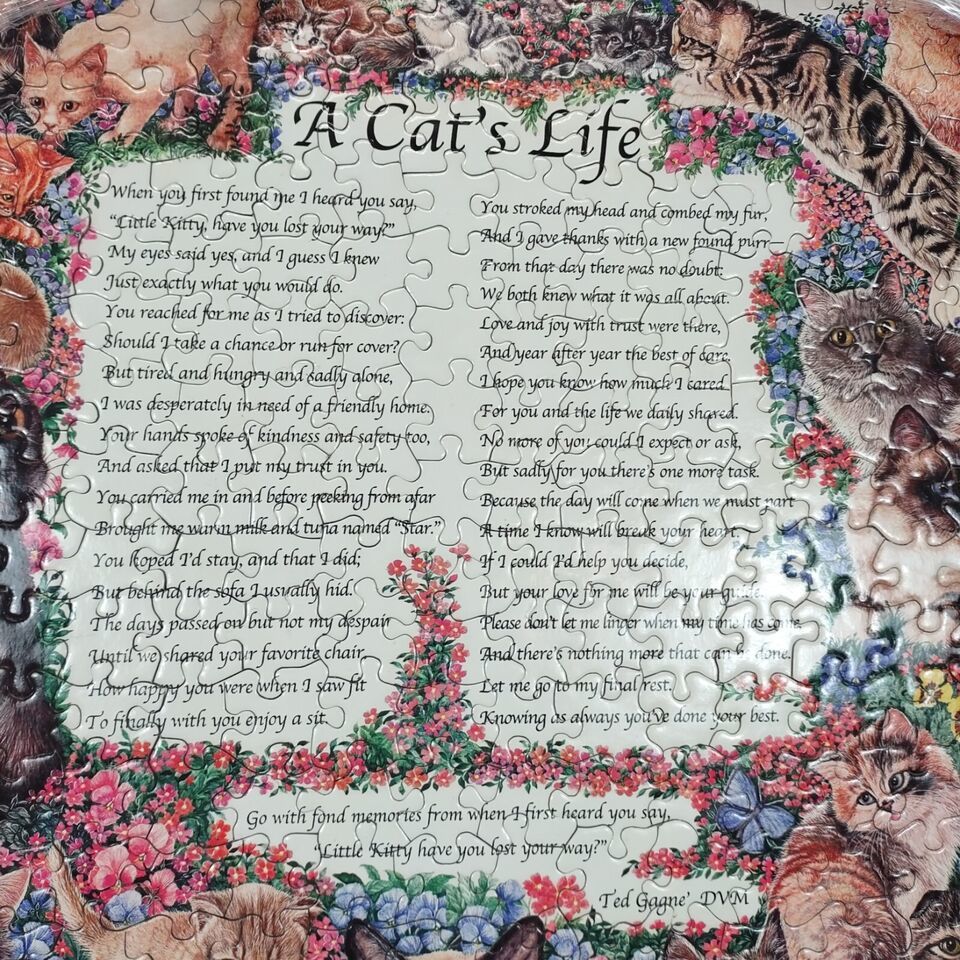 A Cat's Life
When you first found me I heard you say,
"Little Kitty, have you lost your way?"
My eyes said yes, and I guess I knew
Just exactly what you would do.
You reached for me as I tried to discover:
Should I take a chance or run for cover?
But tired and hungry and sadly alone,
I was desperately in need of a friendly home.
Your hands spoke of kindness and safety too,
And asked that I put my trust in you.
You carried me in and before peeking from afar
Brought me warm milk and tuna named "Star."
You hoped I'd stay, and that I did;
But behind the sofa I usually hid.
The days passed on but not my despair
Until we shared your favorite chair.
How happy you were when I saw fit
To finally with you enjoy a sit.
You stroked my head and combed my fur,
And I gave thanks with a new found purr—
From that day there was no doubt:
We both knew what it was all about.
Love and joy with trust were there,
And year after year the best of care.
I hope you know how much I cared
For you and the life we daily shared.
No more of you could I expect or ask,
But sadly for you there's one more task.
Because the day will come when we must part
A time I know will break your heart.
If I could I'd help you decide,
But your love for me will be your guide.
Please don't let me linger when my time has come
And there's nothing more that can be done.
Let me go to my final rest.
Knowing as always you've done your best.
Go with fond memories from when I first heard you say,
"Little Kitty have you lost your way?"
Ted Gagne' DVM